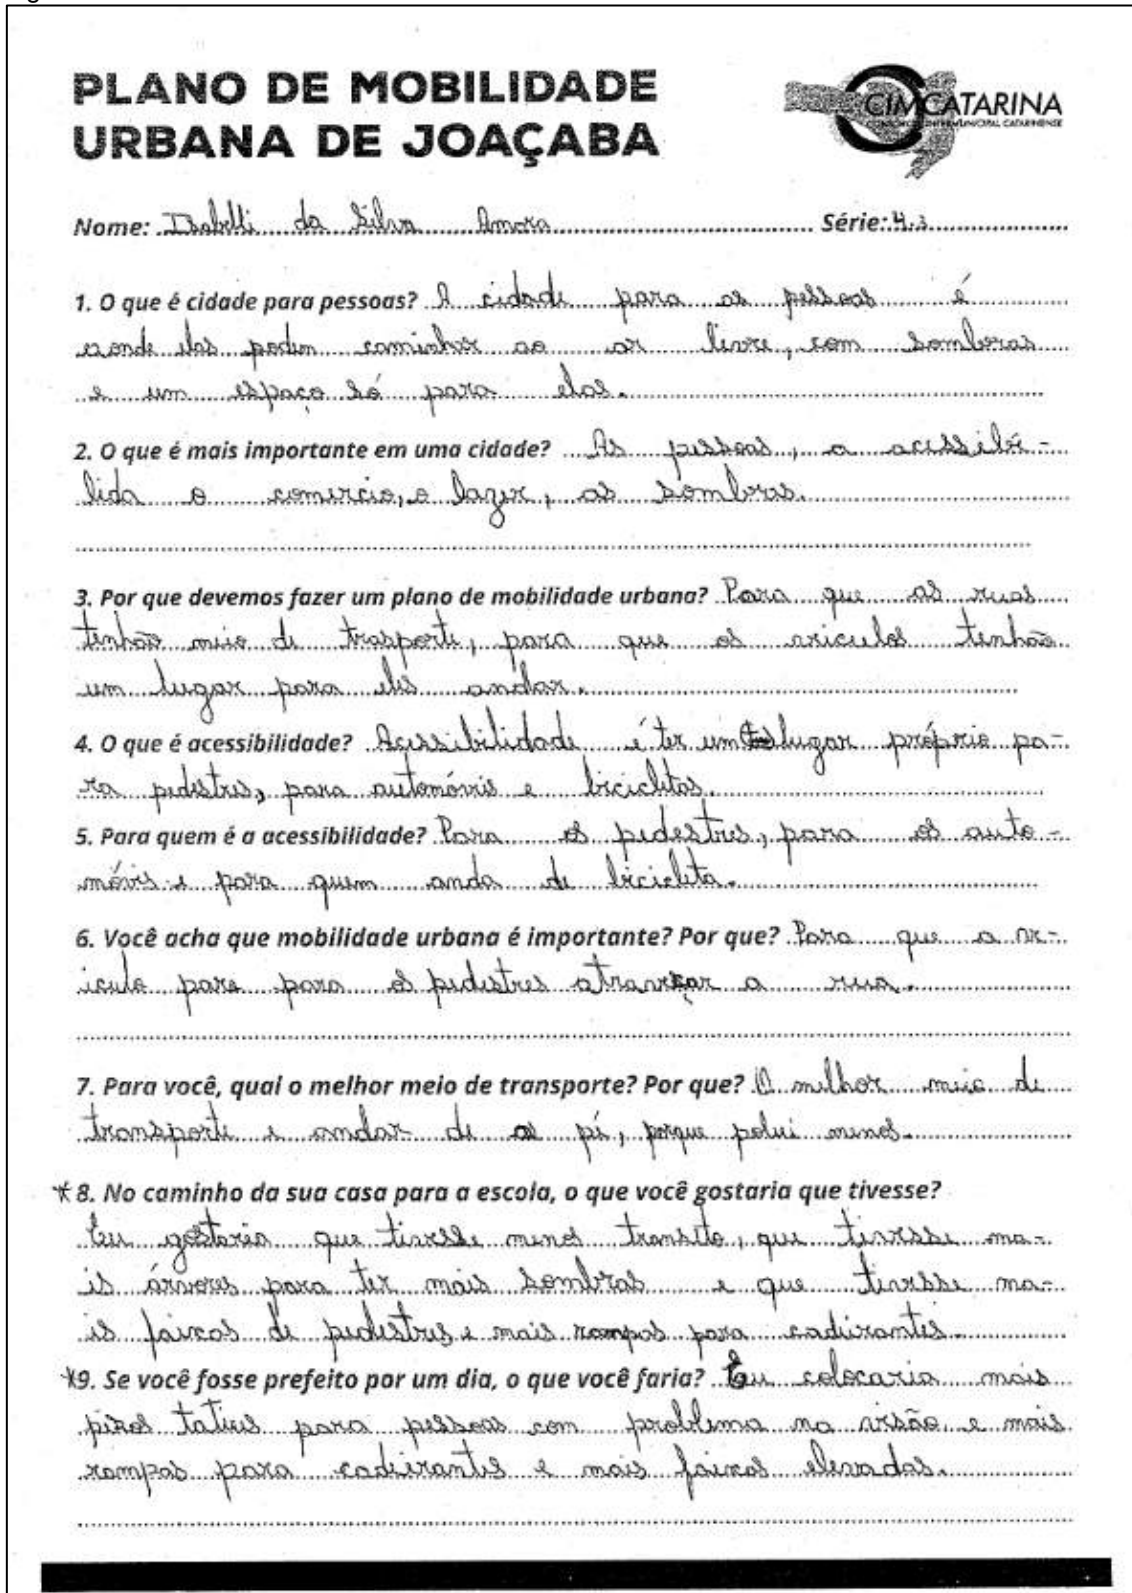 PLANO DE MOBILIDADE
URBANA DE JOAÇABA
CIMCATARINA
CONSÓRCIO INTERMUNICIPAL CATARINENSE
Nome: Isabelli da Silva Amora Série: 4.3
1. O que é cidade para pessoas? A cidade para as pessoas é
onde elas podem caminhar ao ar livre, com sombras
e um espaço só para elas.
2. O que é mais importante em uma cidade? As pessoas, a acessibi-
lida o comercio, o lazer, as sombras.
3. Por que devemos fazer um plano de mobilidade urbana? Para que as ruas
tenhão meio de trasporte, para que os veiculos tenhão
um lugar para eles andar.
4. O que é acessibilidade? Acessibilidade é ter um lugar próprio pa-
ra pedestres, para automóveis e bicicletas.
5. Para quem é a acessibilidade? Para os pedestres, para os auto-
móvis e para quem anda de bicicleta.
6. Você acha que mobilidade urbana é importante? Por que? Para que a ve-
iculo pare para os pedestres atravesar a rua.
7. Para você, qual o melhor meio de transporte? Por que? O melhor meio de
transporte e andar de a pé, porque polui menos.
*8. No caminho da sua casa para a escola, o que você gostaria que tivesse?
Eu gostaria que tivesse menos transito, que tivesse ma-
is árvores para ter mais sombras e que tivesse ma-
is faixas de pedestres e mais rampas para cadeirantes.
*9. Se você fosse prefeito por um dia, o que você faria? Eu colocaria mais
pisos tateis para pessoas com problema na visão e mais
rampas para cadeirantes e mais faixas elevadas.